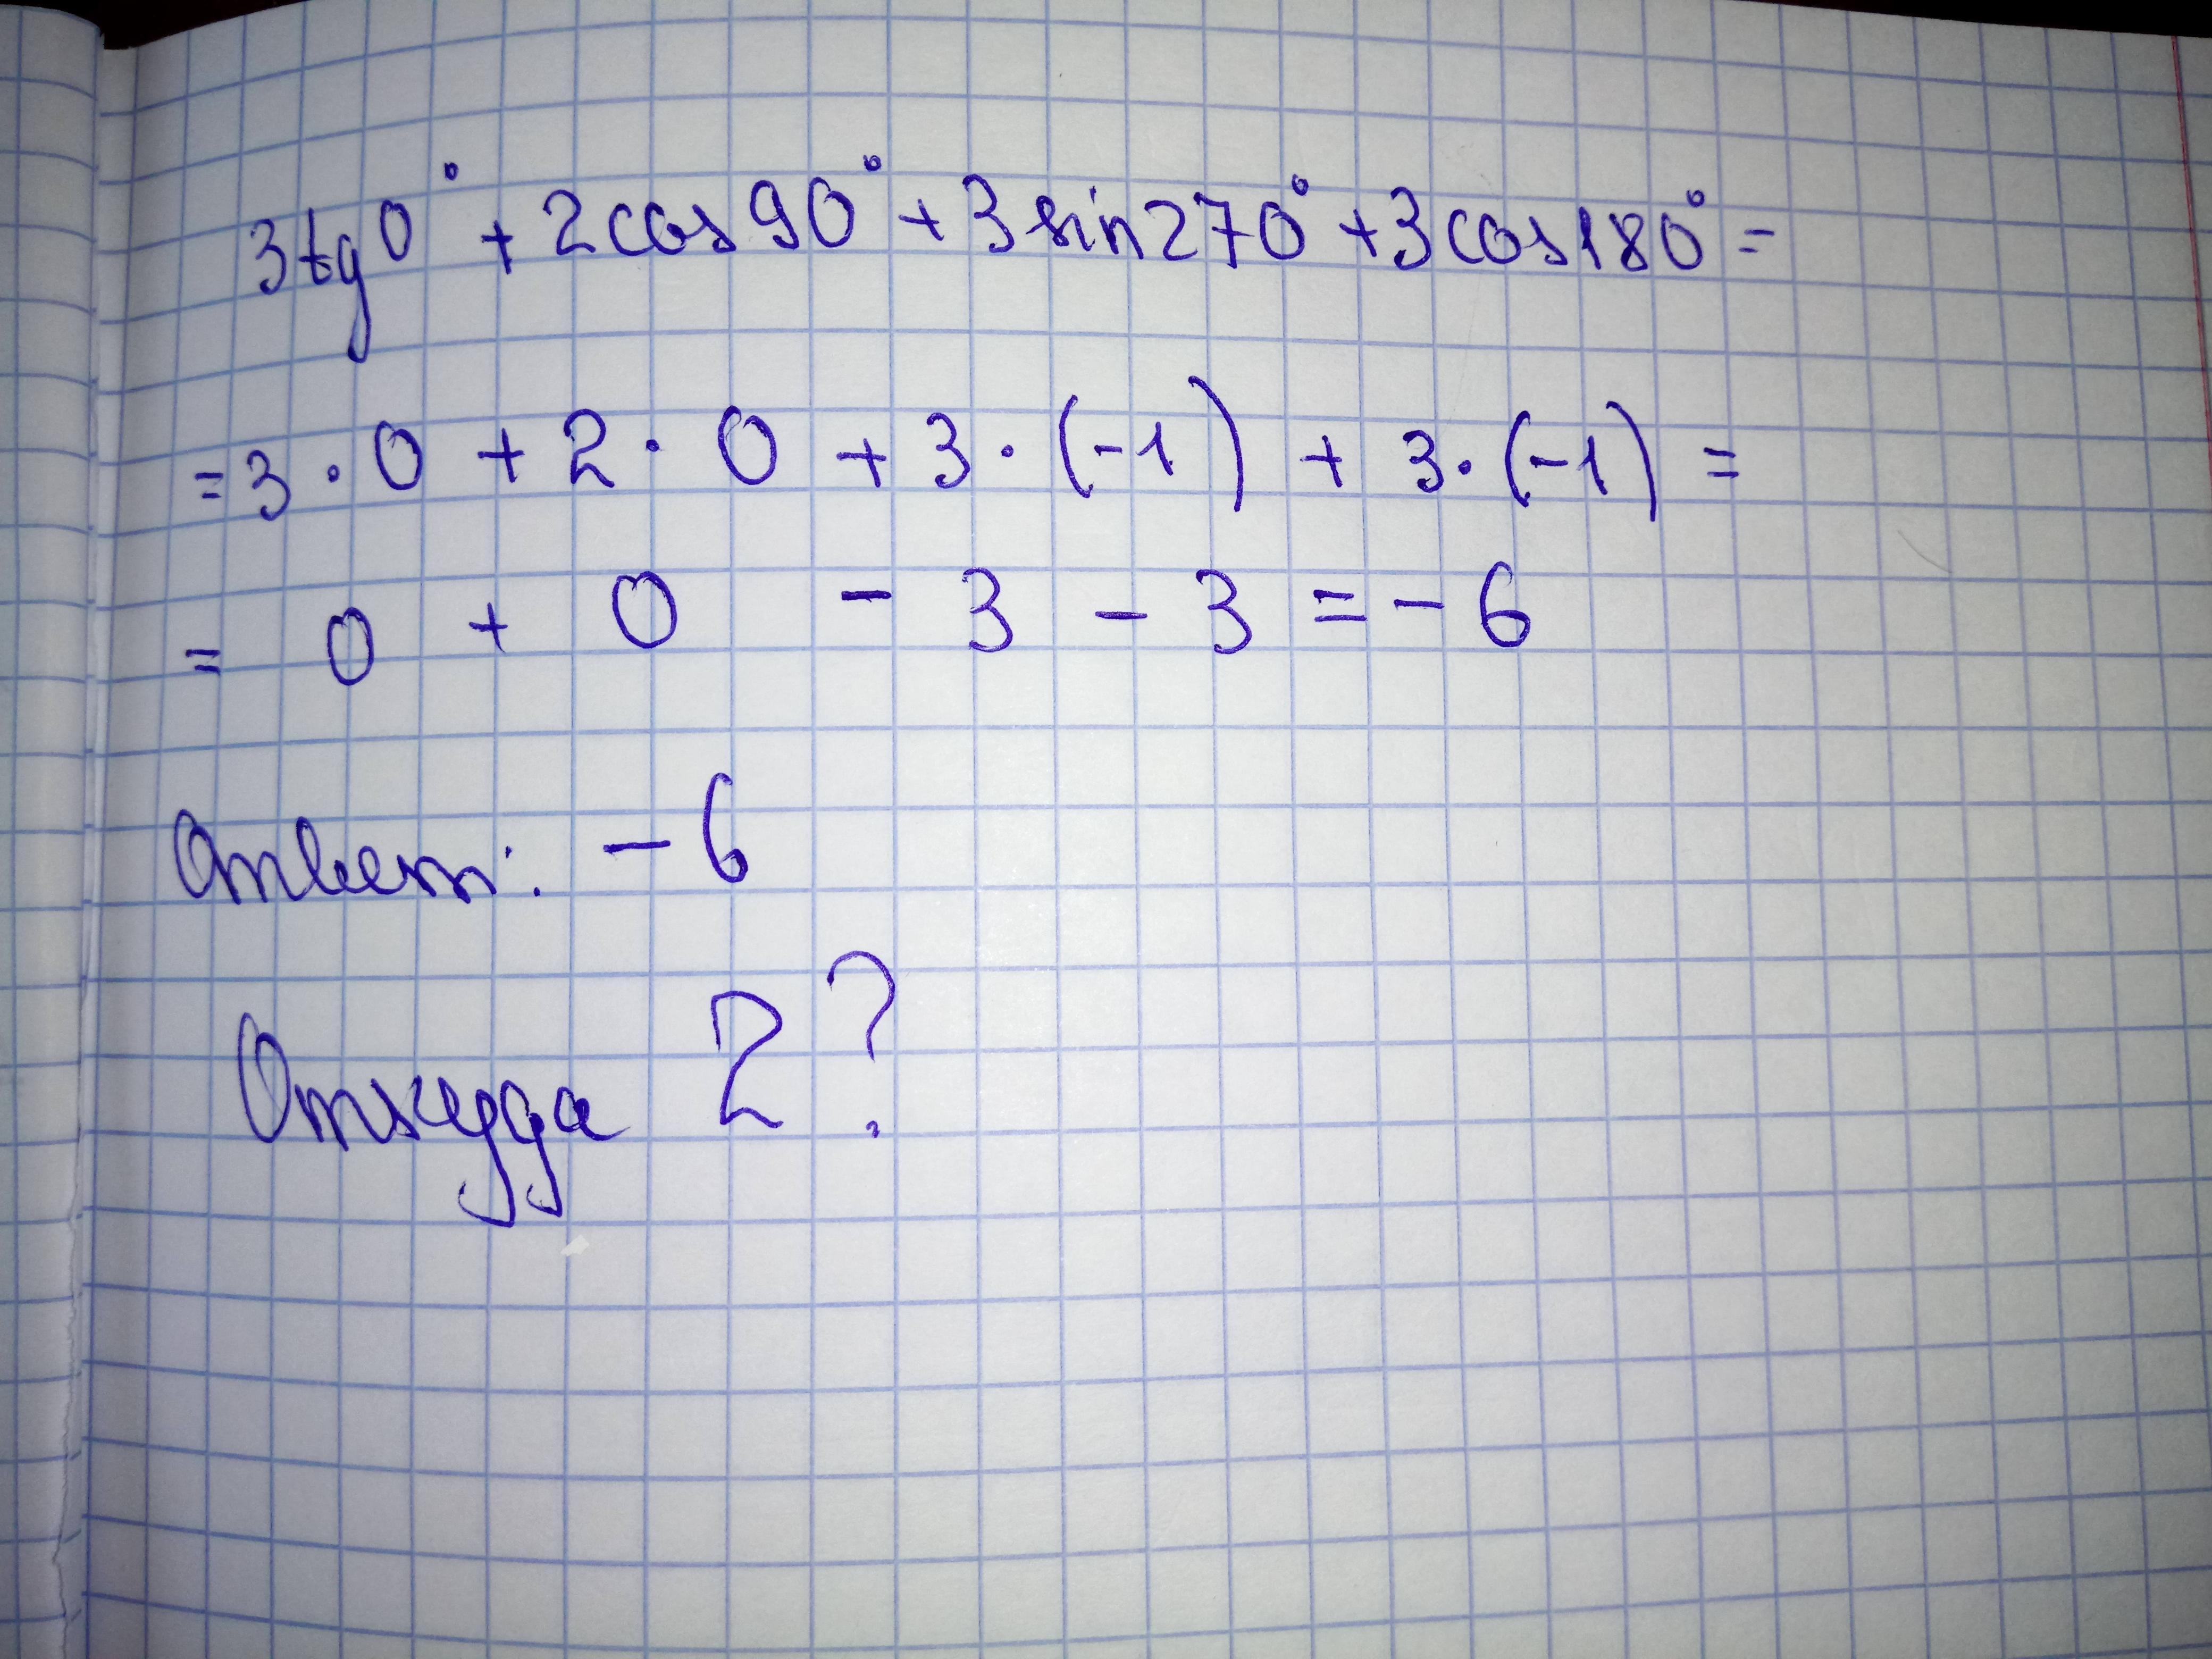 3tg0° + 2cos90° + 3sin270° + 3cos180° =
= 3 · 0 + 2 · 0 + 3 · (-1) + 3 · (-1) =
= 0 + 0 - 3 - 3 = - 6
Ответ: - 6
Откуда 2?